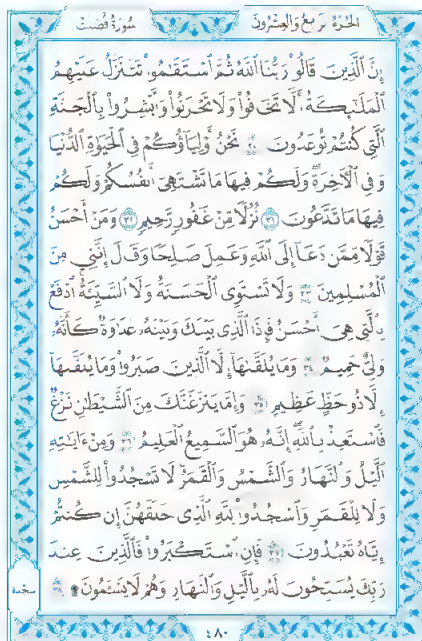 الجزء الرابع والعشرون سورة فصلت
إِنَّ ٱلَّذِينَ قَالُوا۟ رَبُّنَا ٱللَّهُ ثُمَّ ٱسْتَقَـٰمُوا۟ تَتَنَزَّلُ عَلَيْهِمُ
ٱلْمَلَـٰٓئِكَةُ أَلَّا تَخَافُوا۟ وَلَا تَحْزَنُوا۟ وَأَبْشِرُوا۟ بِٱلْجَنَّةِ
ٱلَّتِى كُنتُمْ تُوعَدُونَ ٣٠ نَحْنُ أَوْلِيَآؤُكُمْ فِى ٱلْحَيَوٰةِ ٱلدُّنْيَا
وَفِى ٱلْـَٔاخِرَةِ ۖ وَلَكُمْ فِيهَا مَا تَشْتَهِىٓ أَنفُسُكُمْ وَلَكُمْ
فِيهَا مَا تَدَّعُونَ ٣١ نُزُلًا مِّنْ غَفُورٍ رَّحِيمٍ ٣٢ وَمَنْ أَحْسَنُ
قَوْلًا مِّمَّن دَعَآ إِلَى ٱللَّهِ وَعَمِلَ صَـٰلِحًا وَقَالَ إِنَّنِى مِنَ
ٱلْمُسْلِمِينَ ٣٣ وَلَا تَسْتَوِى ٱلْحَسَنَةُ وَلَا ٱلسَّيِّئَةُ ۚ ٱدْفَعْ
بِٱلَّتِى هِىَ أَحْسَنُ فَإِذَا ٱلَّذِى بَيْنَكَ وَبَيْنَهُۥ عَدَٰوَةٌ كَأَنَّهُۥ
وَلِىٌّ حَمِيمٌ ٣٤ وَمَا يُلَقَّىٰهَآ إِلَّا ٱلَّذِينَ صَبَرُوا۟ وَمَا يُلَقَّىٰهَآ
إِلَّا ذُو حَظٍّ عَظِيمٍ ٣٥ وَإِمَّا يَنزَغَنَّكَ مِنَ ٱلشَّيْطَـٰنِ نَزْغٌ
فَٱسْتَعِذْ بِٱللَّهِ ۖ إِنَّهُۥ هُوَ ٱلسَّمِيعُ ٱلْعَلِيمُ ٣٦ وَمِنْ ءَايَـٰتِهِ
ٱلَّيْلُ وَٱلنَّهَارُ وَٱلشَّمْسُ وَٱلْقَمَرُ ۚ لَا تَسْجُدُوا۟ لِلشَّمْسِ
وَلَا لِلْقَمَرِ وَٱسْجُدُوا۟ لِلَّهِ ٱلَّذِى خَلَقَهُنَّ إِن كُنتُمْ
إِيَّاهُ تَعْبُدُونَ ٣٧ فَإِنِ ٱسْتَكْبَرُوا۟ فَٱلَّذِينَ عِندَ
رَبِّكَ يُسَبِّحُونَ لَهُۥ بِٱلَّيْلِ وَٱلنَّهَارِ وَهُمْ لَا يَسْـَٔمُونَ ۩ ٣٨
سجدة
٤٨٠